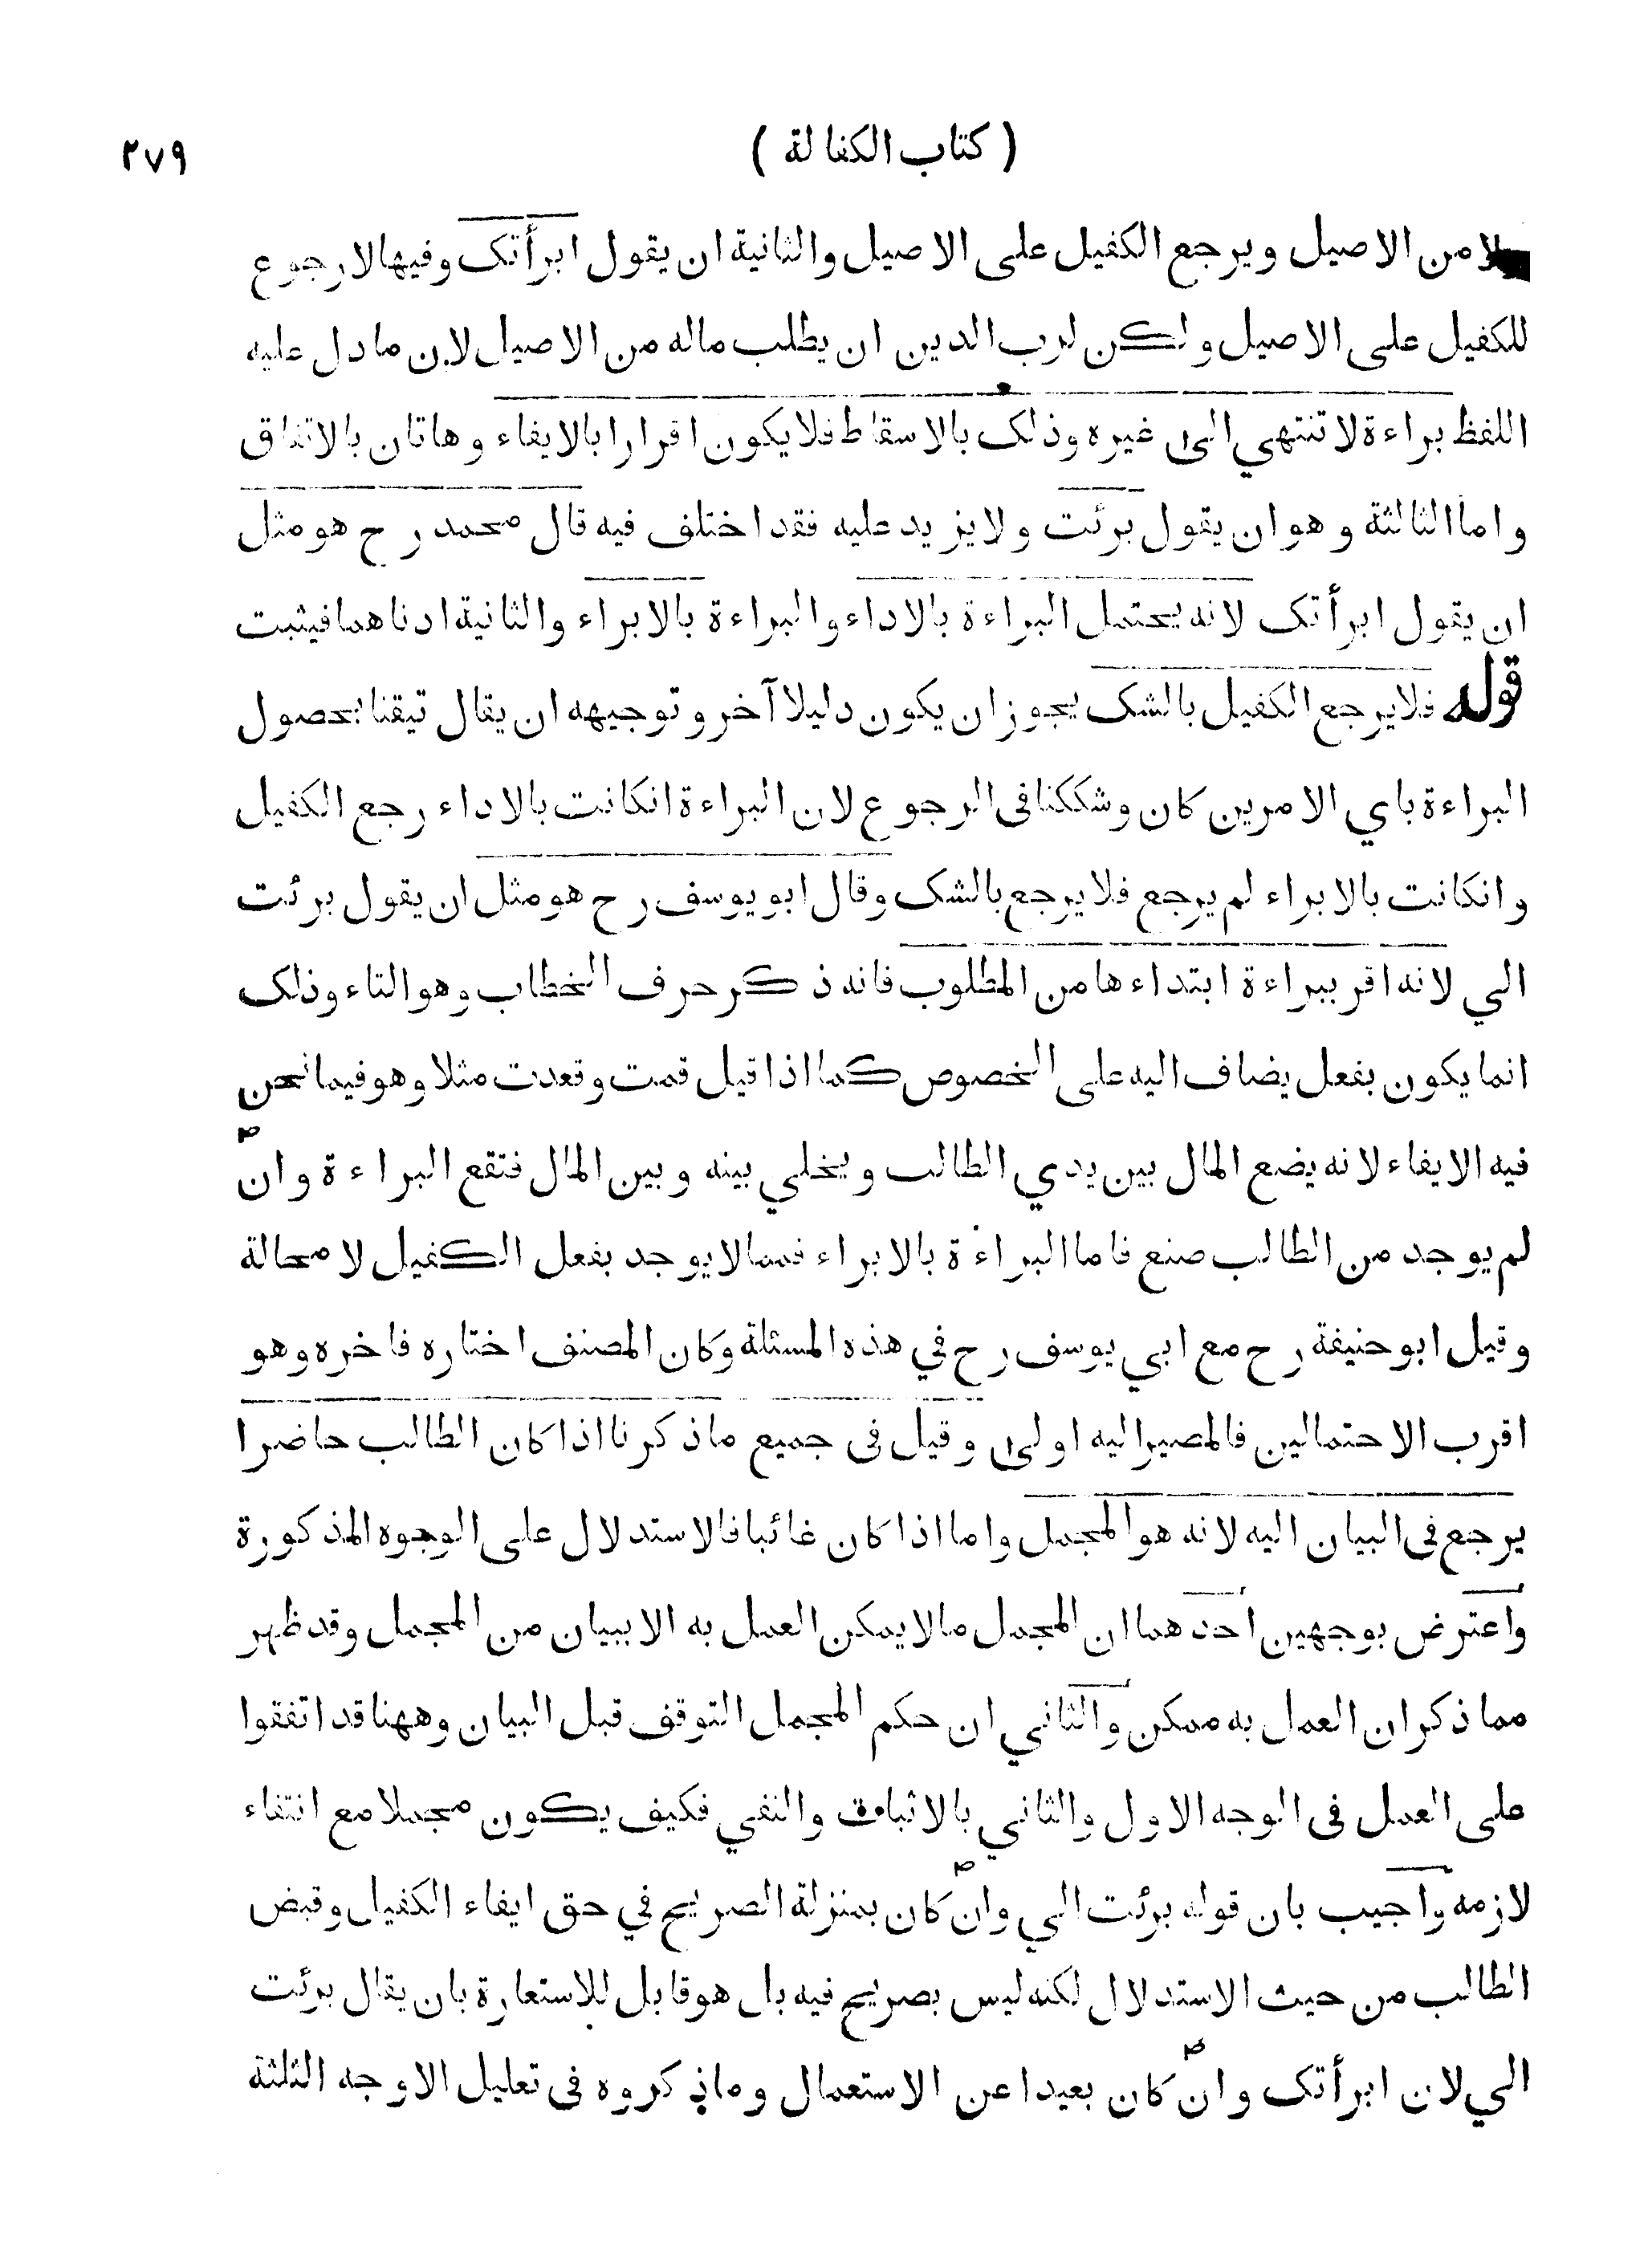 ( كتاب الكفالة ) ٢٧٩
لا من الاصيل ويرجع الكفيل على الاصيل والثانية ان يقول ابرأتک وفيها لا رجوع
للكفيل على الاصيل ولكن لرب الدين ان يطلب ماله من الاصيل لان ما دل عليه
اللفظ براءة لا تنتهي الى غيره وذلک بالاسقاط فلا يكون اقرارا بالايفاء وهاتان بالاتفاق
واما الثالثة وهو ان يقول برئت ولا يزيد عليه فقد اختلف فيه قال محمد رح هو مثل
ان يقول ابرأتک لانه يحتمل البراءة بالاداء والبراءة بالابراء والثانية ادناهما فيثبت
قوله فلا يرجع الكفيل بالشک يجوز ان يكون دليلا آخر وتوجيهه ان يقال تيقنا بحصول
البراءة باي الامرين كان وشككنا فى الرجوع لان البراءة انكانت بالاداء رجع الكفيل
وانكانت بالابراء لم يرجع فلا يرجع بالشک وقال ابو يوسف رح هو مثل ان يقول برئت
الي لانه اقر ببراءة ابتداءها من المطلوب فانه ذكر حرف الخطاب وهو التاء وذلک
انما يكون بفعل يضاف اليه على الخصوص كما اذا قيل قمت وقعدت مثلا وهو فيما نحن
فيه الايفاء لانه يضع المال بين يدي الطالب ويخلي بينه وبين المال فتقع البراءة وان
لم يوجد من الطالب صنع فاما البراءة بالابراء فمما لا يوجد بفعل الكفيل لا محالة
وقيل ابو حنيفة رح مع ابي يوسف رح في هذه المسئلة وكان المصنف اختاره فاخره وهو
اقرب الاحتمالين فالمصير اليه اولى وقيل فى جميع ما ذكرنا اذا كان الطالب حاضرا
يرجع فى البيان اليه لانه هو المجمل واما اذا كان غائبا فالاستدلال على الوجوه المذكورة
واعترض بوجهين احدهما ان المجمل ما لا يمكن العمل به الا ببيان من المجمل وقد ظهر
مما ذكر ان العمل به ممكن والثاني ان حكم المجمل التوقف قبل البيان وههنا قد اتفقوا
على العمل فى الوجه الاول والثاني بالاثبات والنفي فكيف يكون مجملا مع انتفاء
لازمه واجيب بان قوله برئت الي وان كان بمنزلة الصريح في حق ايفاء الكفيل وقبض
الطالب من حيث الاستدلال لكنه ليس بصريح فيه بل هو قابل للاستعارة بان يقال برئت
الي لان ابرأتک وان كان بعيدا عن الاستعمال وما ذكروه فى تعليل الاوجه الثلثة